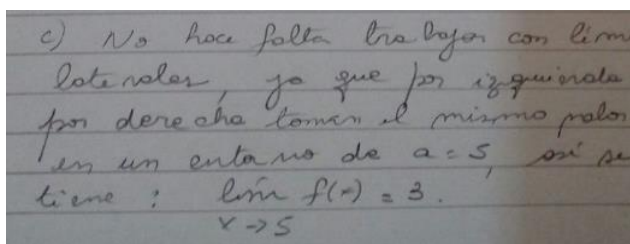 c) No hace falta trabajar con lím
laterales, ya que por izquierda
por derecha toman el mismo valor
en un entorno de a = 5, así se
tiene : lím f(x) = 3.
x → 5